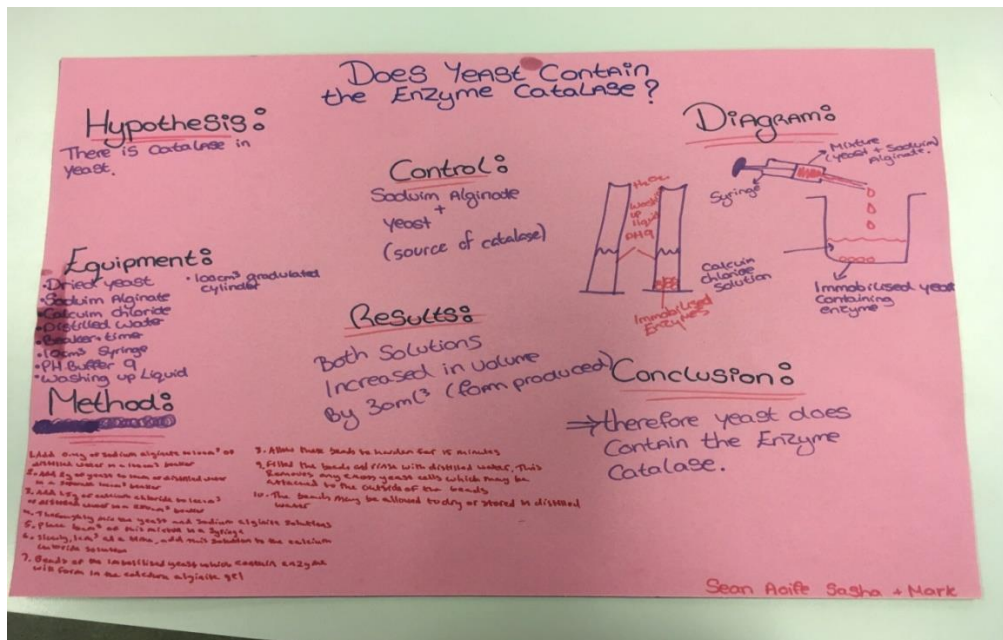 Does Yeast Contain
the Enzyme Catalase?
Hypothesis:
There is catalase in
yeast.
Equipment:
• Dried yeast
• Soduim Alginate
• Calcuim chloride
• Distilled Water
• Beaker + timer
• 10cm³ Syringe
• PH Buffer 9
• Washing up Liquid
• 100cm³ gradulated
cylinder
Method:
of
distilled water in a beaker
2. Add of yeast to of distilled water
in a beaker
3. Add of calcium chloride to
of distilled water in a beaker
4. Thoroughly mix the yeast and sodium alginate solutions
5. Place of this mixture in a syringe
6. Slowly, at a time, add this solution to the calcium
chloride solution
7. Beads of the yeast which contain enzyme
will form in the alginate gel
8. Allow these beads to harden for 15 minutes
9. the beads and rinse with distilled water. This
Removes any excess yeast cells which may be
attached to the outside of the beads
10. The beads may be allowed to dry or stored in distilled
water
Control:
Soduim Alginade
+
yeast
(source of catalase)
Results:
Both Solutions
Increased in volume
By 30ml³ (form produced)
Diagram:
Mixture
(yeast + Soduim)
Alginate.
Syringe
H₂O₂
Washing
up
liquid
PH9
Calcuim
chloride
solution
Immobilised
Enzymes
Immobilised yeast
containing
enzyme
Conclusion:
⇒ therefore yeast does
Contain the Enzyme
Catalase.
Sean Aoife Sasha + Mark